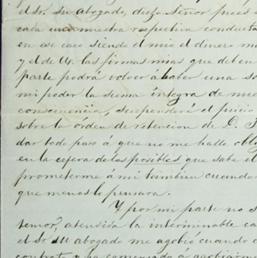 el Sr. su abogado, dicho Señor pues
cada una nuestra respectiva conducta
en ese caso siendo el mio el dinero
y el de V. las firmas mias que deben
parte podrá volver á haber una
mi poder la suma integra de
consecuencia, suspenderá el juicio
sobre la órden de retencion de
dar todo paso á que no me halle
en la espera de las posibles que sabe el
prometerme á mi tambien cuando
que menos lo pensara.
Y por mi parte no
temor, atendida la interminable
el Sr. su abogado me agobió cuando